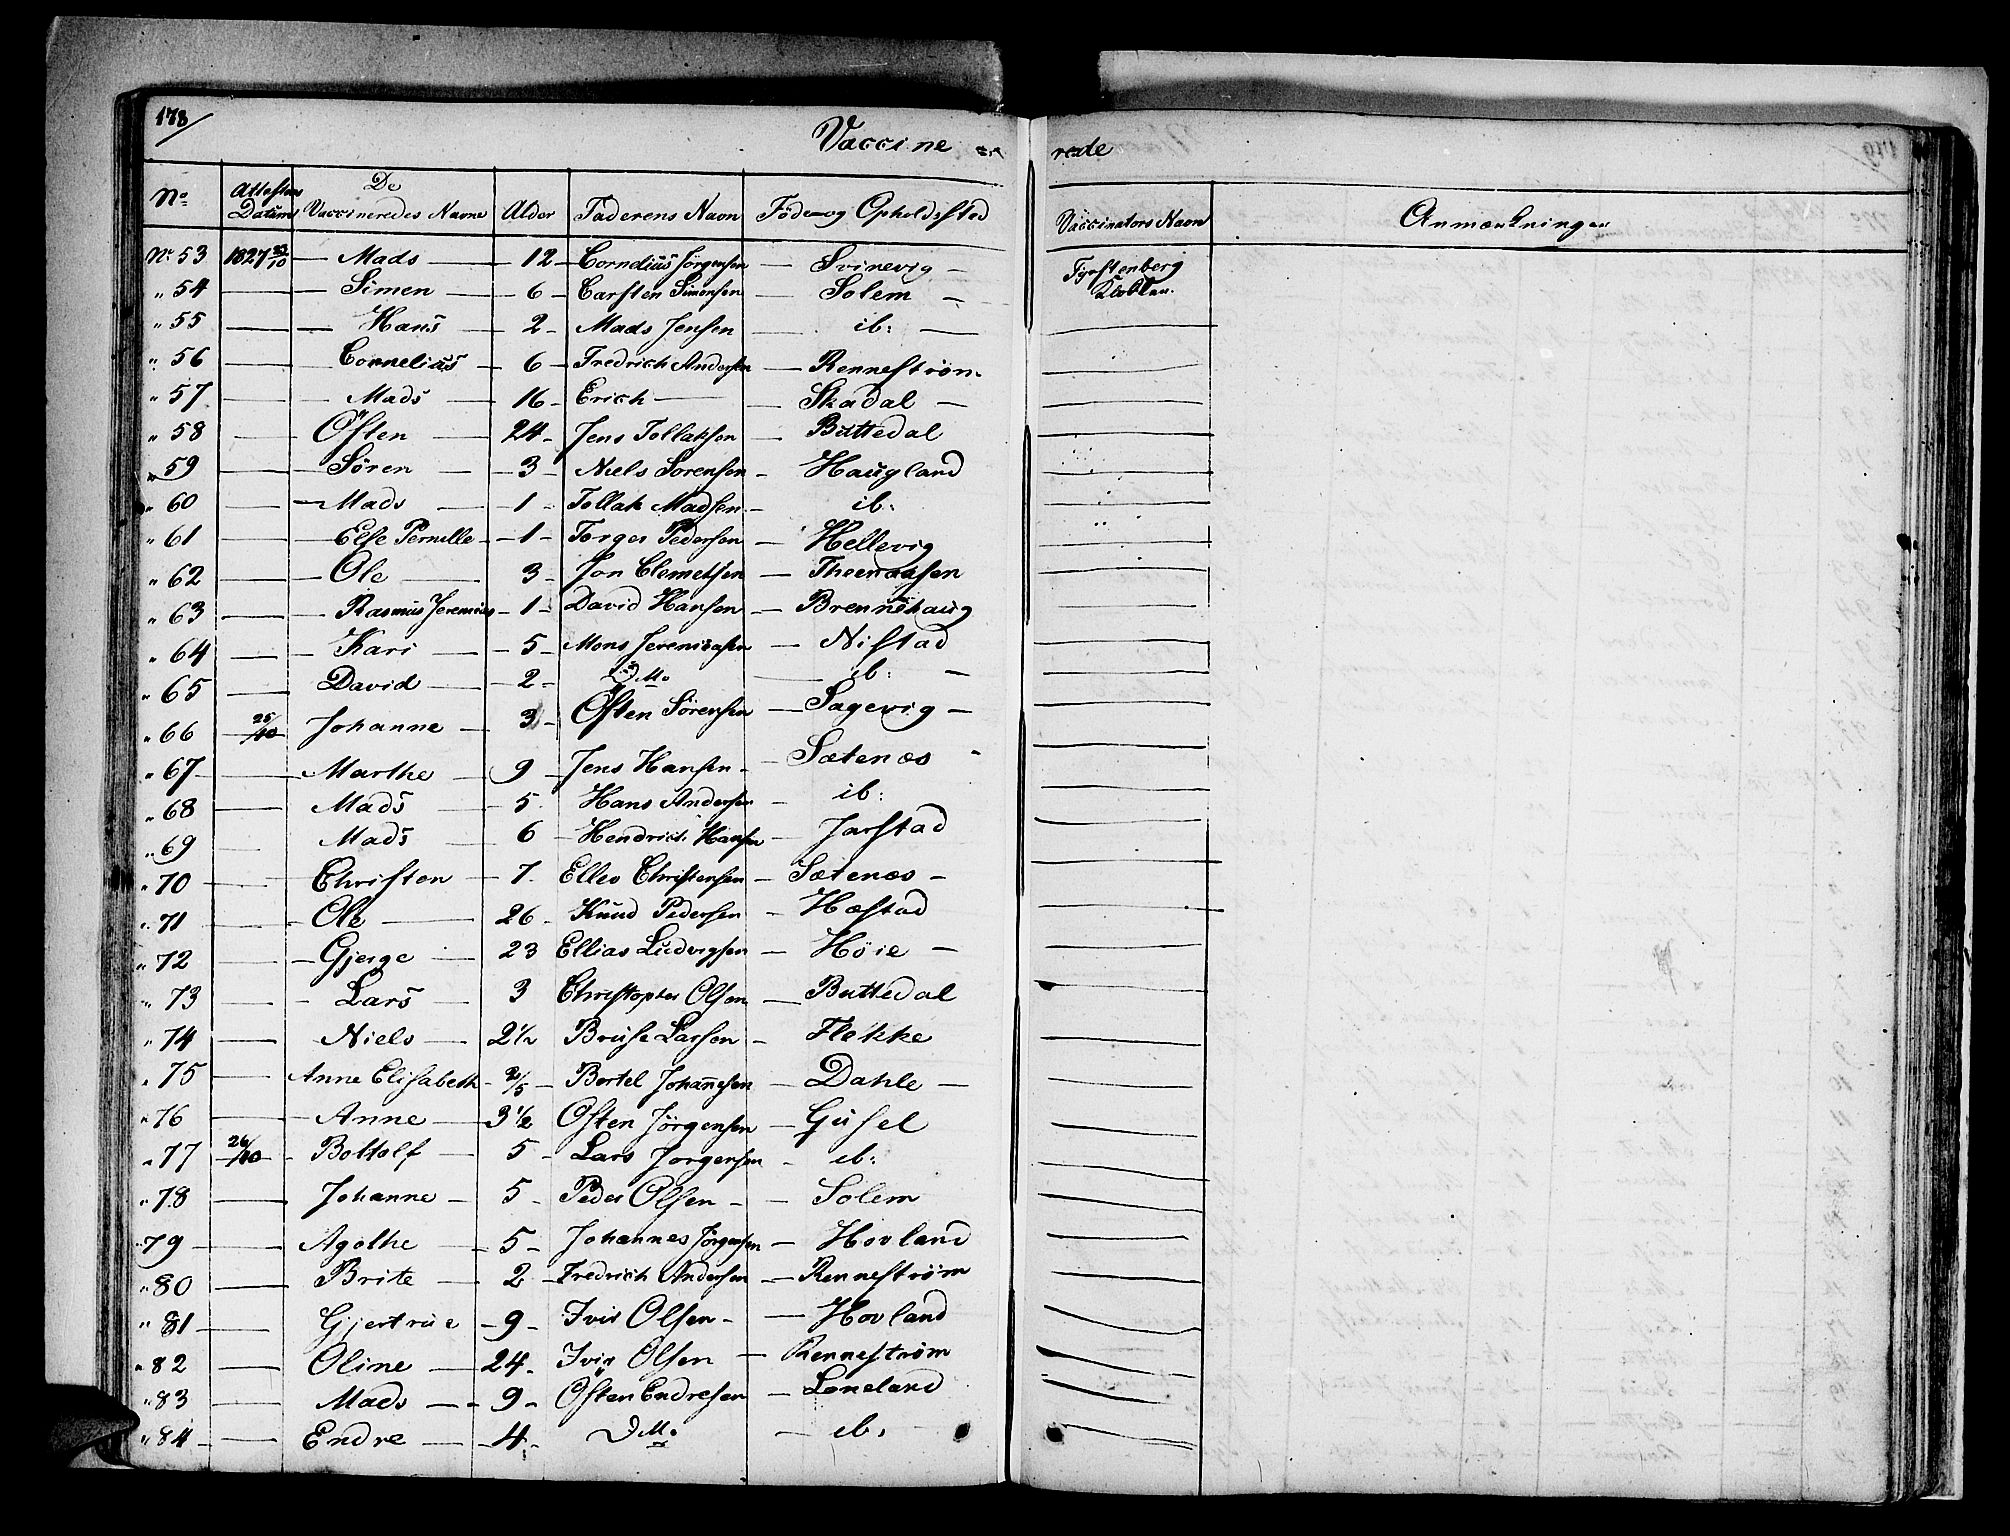 178
Vaccine rede
No Attesten Datum De Vaccineredes Navne Alder Faderens Navn Føde og Opholdssted Vaccinators Navn Anmærkninger
No 53 1827 Mads 12 Cornelius Jörgensen Svinevig
" 54 — Simen 6 Carsten Simonsen Solem
" 55 — Hans 2 Mads Jensen ib:
" 56 — Cornelius 6 Fredrich Andersen Rennestrøm
" 57 — Mads 16 Erich — Skadal
" 58 — Östen 24 Jens Tollaksen Buttedal
" 59 — Sören 3 Niels Sorensen Haugland
" 60 — Mads 1 Tollak Madsen ib:
" 61 — Else Pernille 1 Torger Pedersen Hellevig
" 62 — Ole 3 Jon Clemetsen
" 63 — Rasmus Jeremias 1 David Hansen Brennehaug
" 64 — Kari 5 Mons Jeremiasen Nistad
" 65 — David 2 Do ib:
" 66 25/10 Johanne 3 Östen Sörensen Sagevig
" 67 — Marthe 9 Jens Hansen Sætenæs
" 68 — Mads 5 Hans Andersen ib:
" 69 — Mads 6 Hendrich Hansen Jarstad
" 70 — Christen 7 Ellev Christensen Sætenæs
" 71 — Ole 26 Knud Pedersen Hæstad
" 72 — Gjerge 23 Ellias Ludvigsen Høie
" 73 — Lars 3 Christopher Olsen Buttedal
" 74 — Niels 2 1/2 Bruse Larsen Flekke
" 75 — Anne Elisabeth Bertel Johannesen Dahle
" 76 — Anne 3 1/2 Osten Jörgensen Gusel
" 77 26/10 Bottolf 5 Lars Jorgensen ib:
" 78 — Johanne 5 Peder Olsen Solem
" 79 — Agathe 5 Johannes Jørgensen Hovland
" 80 — Brite 2 Fredrich Andersen Rennestrøm
" 81 — Gjertrue 9 Iver Olsen Hovland
" 82 — Oline 24 Iver Olsen Rennestrøm
" 83 — Mads 9 Östen Endresen Leneland
" 84 — Endre 4 Do ib: